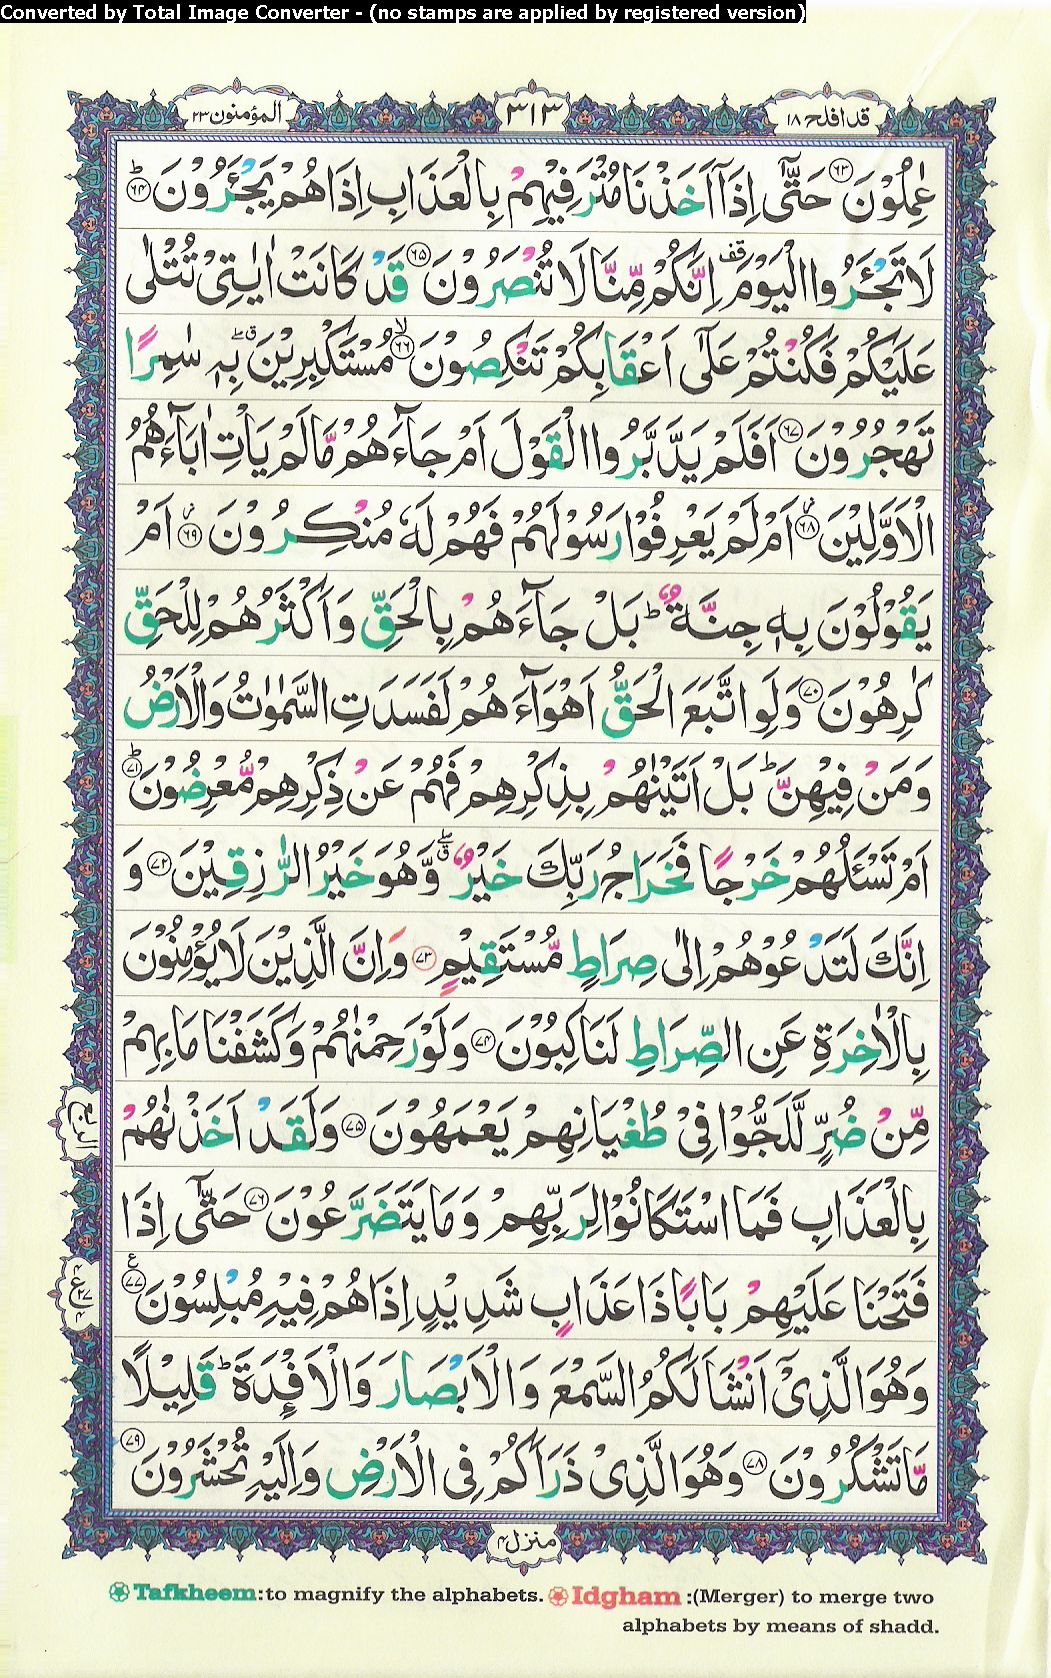 Converted by Total Image Converter - (no stamps are applied by registered version)
قد افلح ١٨
٣١٣
المؤمنون ٢٣
عٰمِلُوْنَ ﴿٦٣﴾ حَتّٰٓى اِذَاۤ اَخَذْنَا مُتْرَفِيْهِمْ بِالْعَذَابِ اِذَا هُمْ يَجْـَٔرُوْنَ ؕ﴿٦٤﴾
لَا تَجْـَٔرُوا الْيَوْمَ ۫ اِنَّكُمْ مِّنَّا لَا تُنْصَرُوْنَ ﴿٦٥﴾ قَدْ كَانَتْ اٰيٰتِيْ تُتْلٰى
عَلَيْكُمْ فَكُنْتُمْ عَلٰٓى اَعْقَابِكُمْ تَنْكِصُوْنَ ۙ﴿٦٦﴾ مُسْتَكْبِرِيْنَ ۖۗ بِهٖ سٰمِرًا
تَهْجُرُوْنَ ﴿٦٧﴾ اَفَلَمْ يَدَّبَّرُوا الْقَوْلَ اَمْ جَآءَهُمْ مَّا لَمْ يَاْتِ اٰبَآءَهُمُ
الْاَوَّلِيْنَ ؗ﴿٦٨﴾ اَمْ لَمْ يَعْرِفُوْا رَسُوْلَهُمْ فَهُمْ لَهٗ مُنْكِرُوْنَ ؗ﴿٦٩﴾ اَمْ
يَقُوْلُوْنَ بِهٖ جِنَّةٌ ؕ بَلْ جَآءَهُمْ بِالْحَقِّ وَاَكْثَرُهُمْ لِلْحَقِّ
كٰرِهُوْنَ ﴿٧٠﴾ وَلَوِ اتَّبَعَ الْحَقُّ اَهْوَآءَهُمْ لَفَسَدَتِ السَّمٰوٰتُ وَالْاَرْضُ
وَمَنْ فِيْهِنَّ ؕ بَلْ اَتَيْنٰهُمْ بِذِكْرِهِمْ فَهُمْ عَنْ ذِكْرِهِمْ مُّعْرِضُوْنَ ؕ﴿٧١﴾
اَمْ تَسْـَٔلُهُمْ خَرْجًا فَخَرَاجُ رَبِّكَ خَيْرٌ ۖۗ وَّهُوَ خَيْرُ الرّٰزِقِيْنَ ﴿٧٢﴾ وَ
اِنَّكَ لَتَدْعُوْهُمْ اِلٰى صِرَاطٍ مُّسْتَقِيْمٍ ﴿٧٣﴾ وَاِنَّ الَّذِيْنَ لَا يُؤْمِنُوْنَ
بِالْاٰخِرَةِ عَنِ الصِّرَاطِ لَنَاكِبُوْنَ ﴿٧٤﴾ وَلَوْ رَحِمْنٰهُمْ وَكَشَفْنَا مَا بِهِمْ
مِّنْ ضُرٍّ لَّلَجُّوْا فِيْ طُغْيَانِهِمْ يَعْمَهُوْنَ ﴿٧٥﴾ وَلَقَدْ اَخَذْنٰهُمْ
بِالْعَذَابِ فَمَا اسْتَكَانُوْا لِرَبِّهِمْ وَمَا يَتَضَرَّعُوْنَ ﴿٧٦﴾ حَتّٰٓى اِذَا
فَتَحْنَا عَلَيْهِمْ بَابًا ذَا عَذَابٍ شَدِيْدٍ اِذَا هُمْ فِيْهِ مُبْلِسُوْنَ ۧ﴿٧٧﴾
وَهُوَ الَّذِيْۤ اَنْشَاَ لَكُمُ السَّمْعَ وَالْاَبْصَارَ وَالْاَفْـِٕدَةَ ؕ قَلِيْلًا
مَّا تَشْكُرُوْنَ ﴿٧٨﴾ وَهُوَ الَّذِيْ ذَرَاَكُمْ فِي الْاَرْضِ وَاِلَيْهِ تُحْشَرُوْنَ ﴿٧٩﴾
الربع
ع
٤ ٢٧ ٤
منزل ٤
Tafkheem:to magnify the alphabets. Idgham :(Merger) to merge two
alphabets by means of shadd.